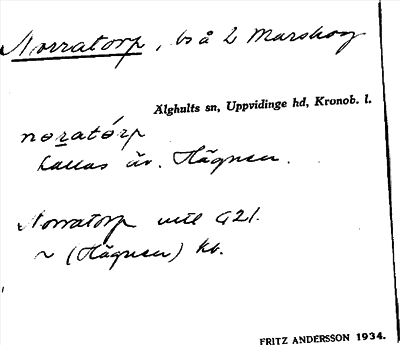 Norratorp, bs å 2 Marskog
Älghults sn, Uppvidinge hd, Kronob. l.
noratórp
kallas äv. Hägnen.
Norratorp utl G21.
~ (Hägnen) kb.
FRITZ ANDERSSON 1934.